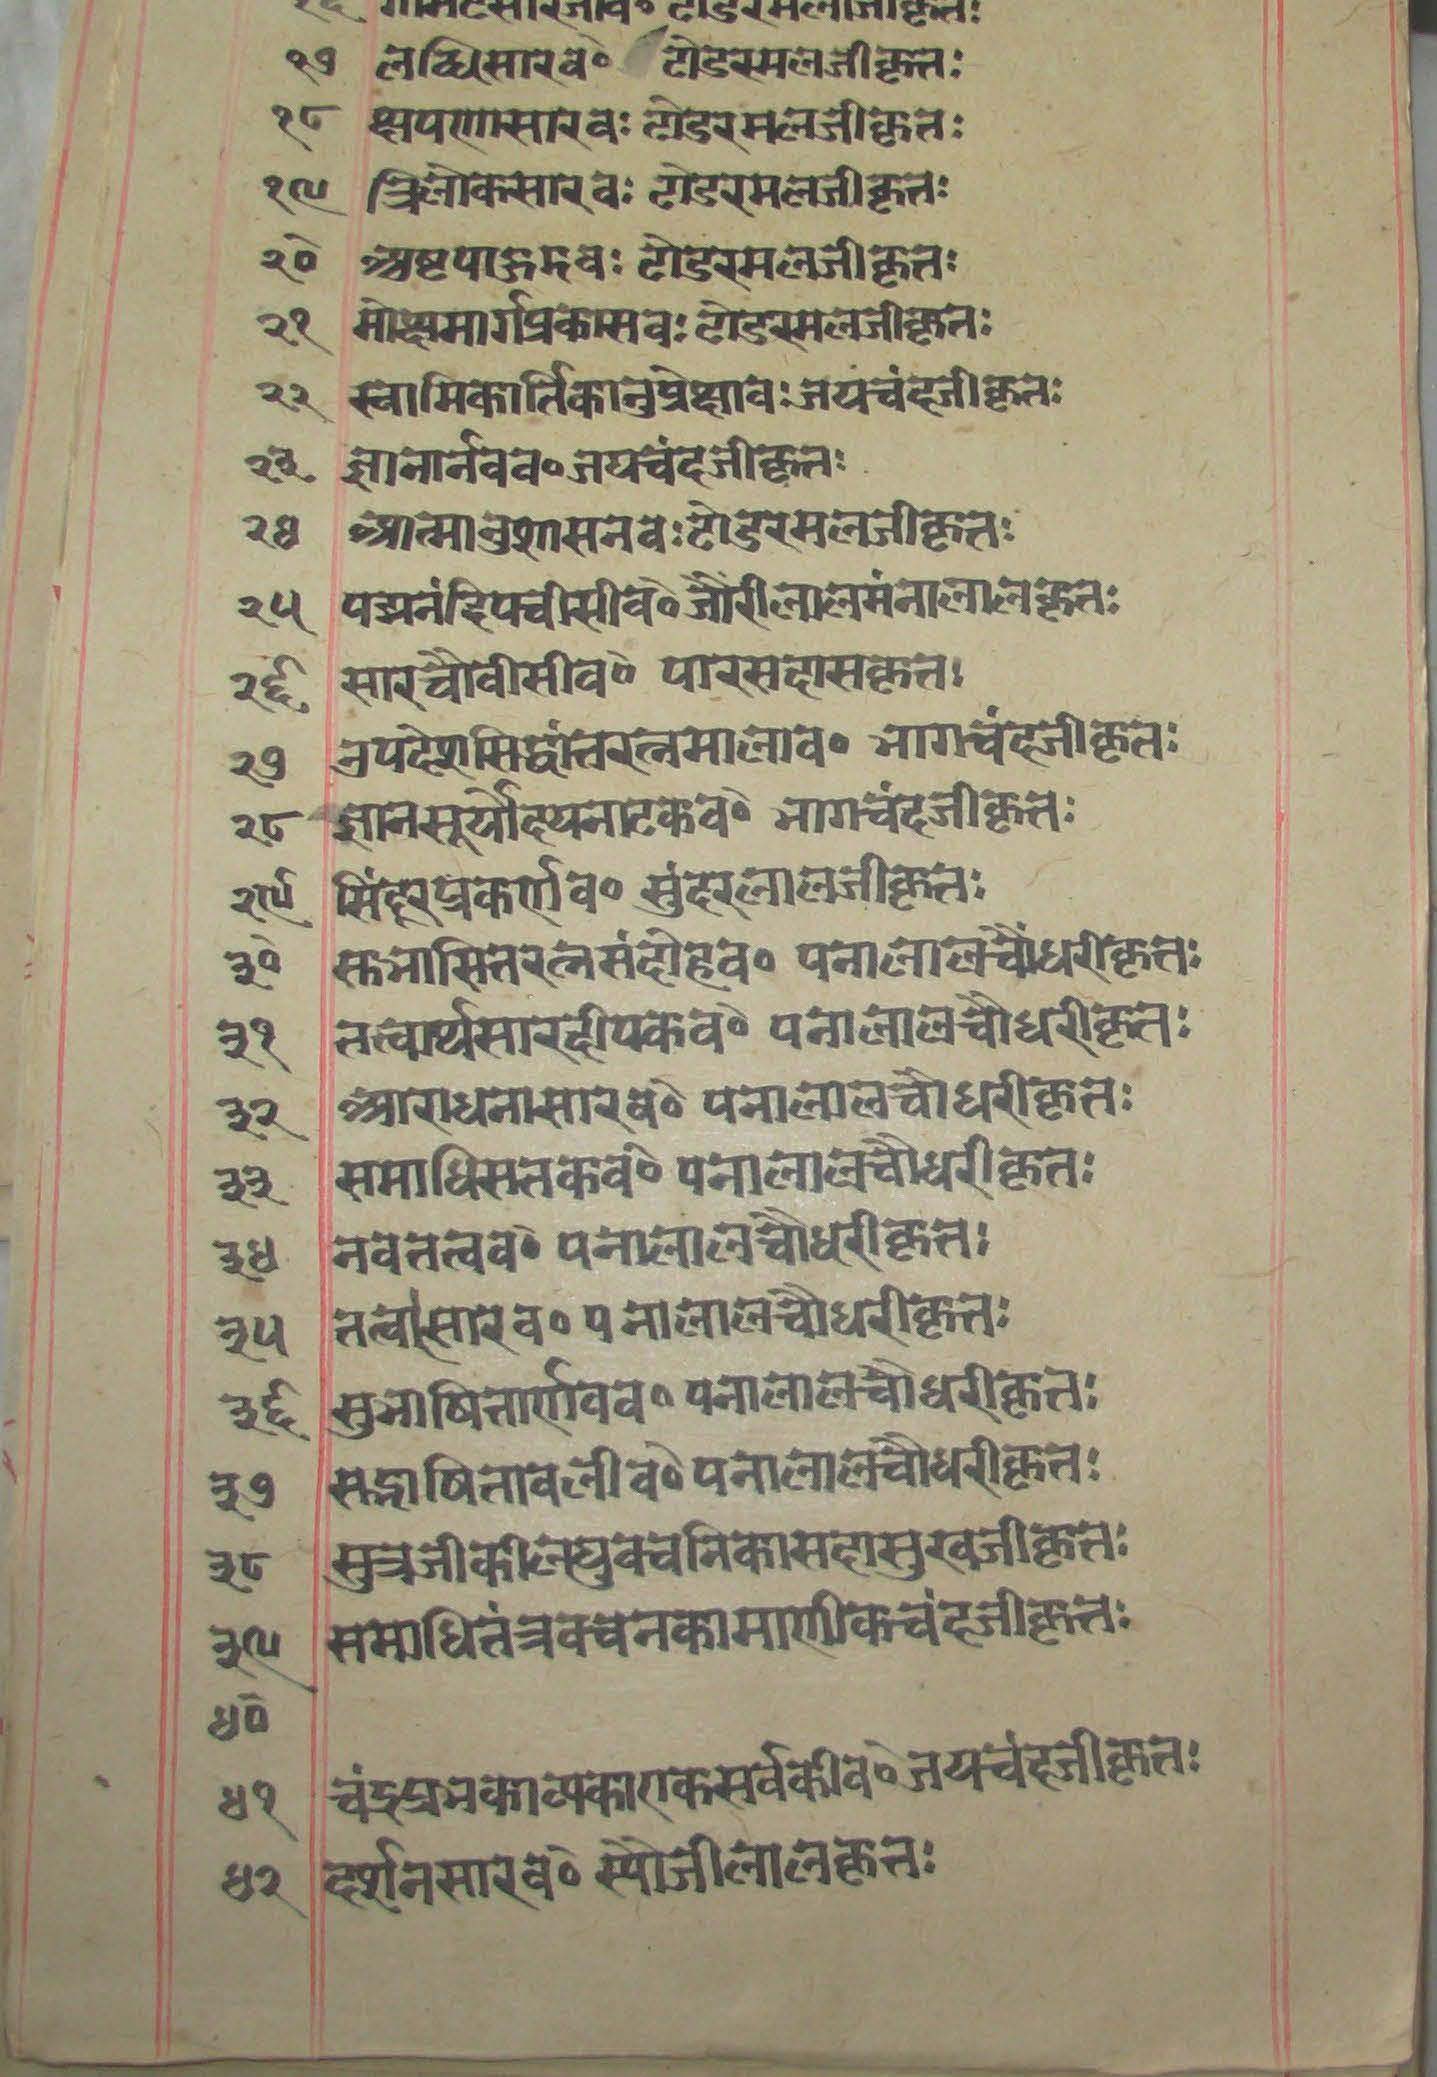 १६ गोमटसारजीव० टोडरमलजीकृतः
१७ लब्धिसारव० टोडरमलजीकृतः
१८ क्षपणासारवः टोडरमलजीकृतः
१९ त्रिलोकसारवः टोडरमलजीकृतः
२० अष्टपाहुडवः टोडरमलजीकृतः
२१ मोक्षमार्गप्रकासवः टोडरमलजीकृतः
२२ स्वामिकार्तिकानुप्रेक्षावः जयचंदजीकृतः
२३ ज्ञानार्नवव० जयचंदजीकृतः
२४ आत्मानुशासनवः टोडरमलजीकृतः
२५ पद्मनंदिपचीसीव० जौंरीलालमंनालालकृतः
२६ सारचौवीसीव० पारसदासकृतः
२७ उपदेशसिद्धांतरत्नमालाव० भागचंदजीकृतः
२८ ज्ञानसूर्योदयनाटकव० भागचंदजीकृतः
२९ सिंदूरप्रकर्णव० सुंदरलालजीकृतः
३० सुभासितरत्नसंदोहव० पनालालचौधरीकृतः
३१ तत्वार्थसारदीपकव० पनालालचौधरीकृतः
३२ आराधनासारव० पनालालचौधरीकृतः
३३ समाधिसतकव० पनालालचौधरीकृतः
३४ नवतत्वव० पनालालचौधरीकृतः
३५ तत्वासारव० पनालालचौधरीकृतः
३६ सुभाषितार्णवव० पनालालचौधरीकृतः
३७ सद्भाषितावलीव० पनालालचौधरीकृतः
३८ सुत्रजीकीलघुवचनिकासदासुखजीकृतः
३९ समाधितंत्रवचनकामाणीकचंदजीकृतः
४०
४१ चंद्रप्रभकाव्यकाएकसर्वकीव० जयचंदजीकृतः
४२ दर्शनसारव० स्यौजीलालकृतः